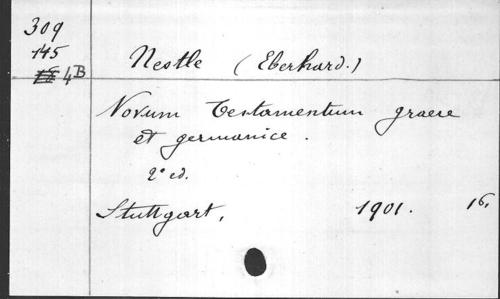 309
145
4B
Nestle (Eberhard.)
Novum Testamentum graece
et germanice.
2° ed.
Stuttgart, 1901. 16.